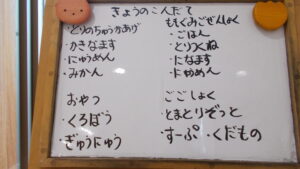 きょうのこんだて
・とりのちゅうかあげ
・かきなます
・にゅうめん
・みかん
おやつ
・くろぼう
・ぎゅうにゅう
ももぐみごぜんしょく
・ごはん
・とりつくね
・になます
・にゅうめん
ごごしょく
・とまとりぞっと
・すーぷ ・くだもの